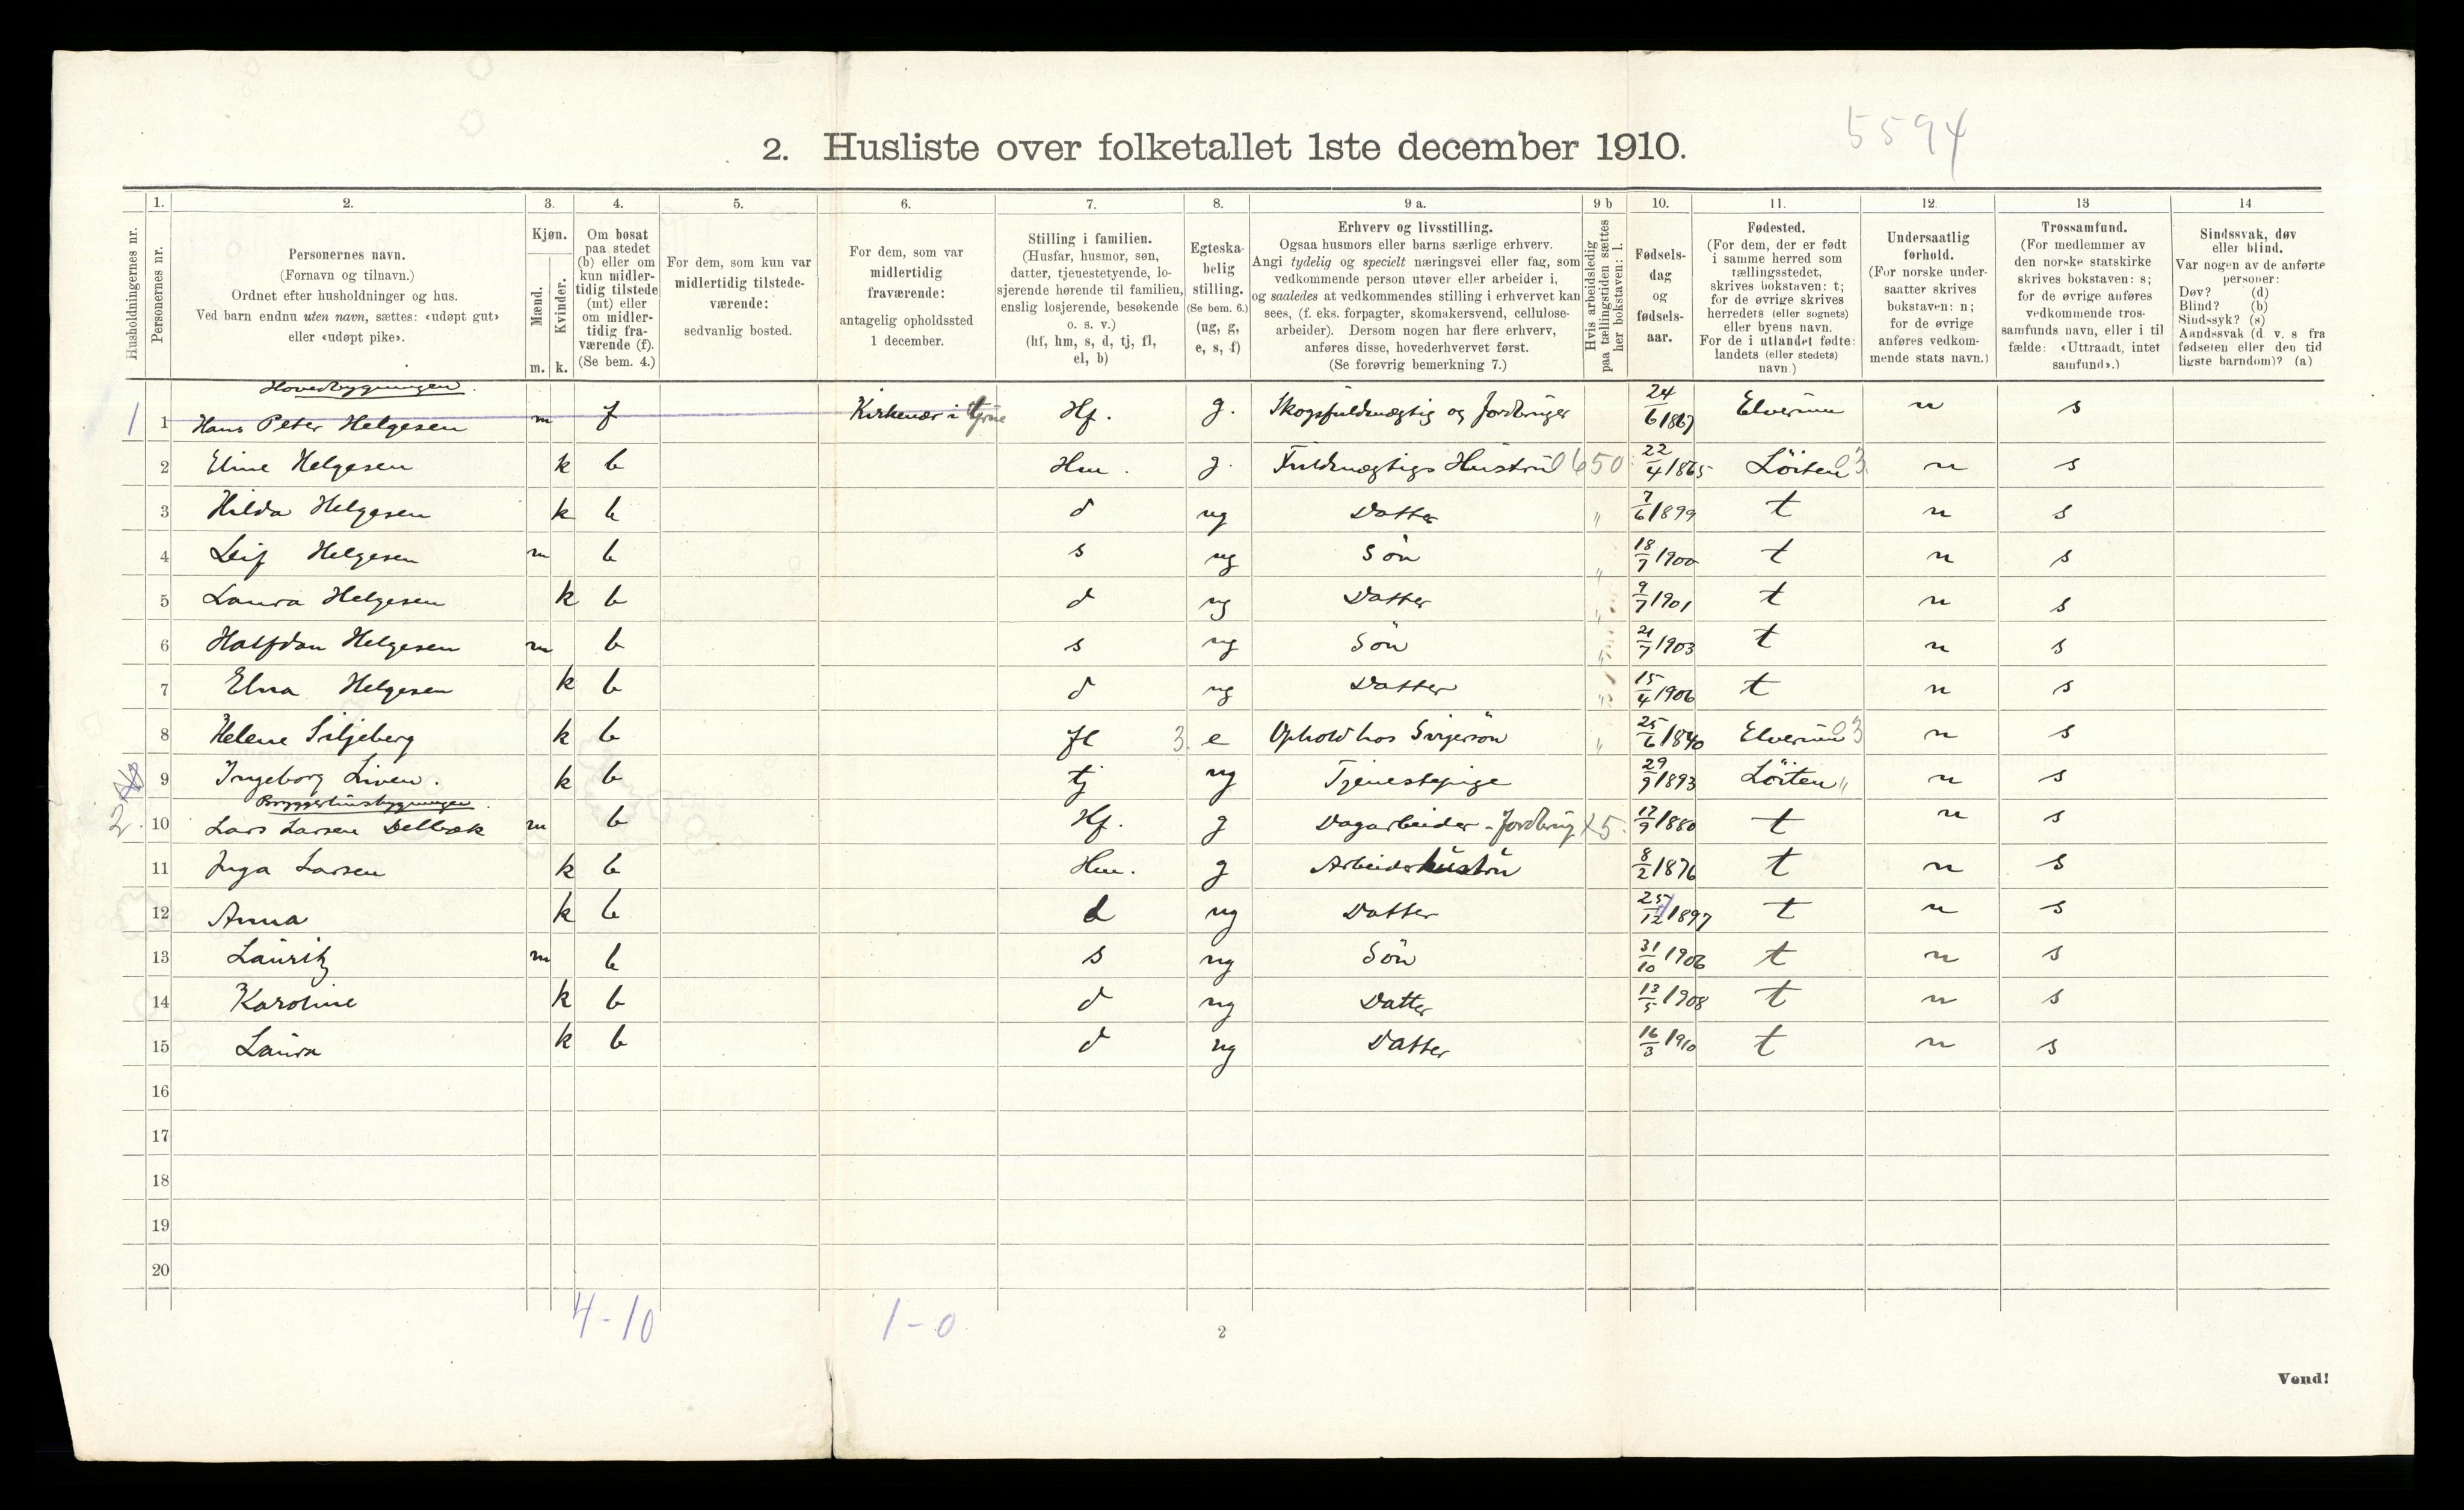 5594
2. Husliste over folketallet 1ste december 1910.
Husholdningernes nr.
1. Personernes nr.
2. Personernes navn. (Fornavn og tilnavn.) Ordnet efter husholdninger og hus. Ved barn endnu uten navn, sættes: «udøpt gut» eller «udøpt pike».
3. Kjøn. Mænd. m. Kvinder. k.
4. Om bosat paa stedet (b) eller om kun midlertidig tilstede (mt) eller om midlertidig fraværende (f). (Se bem. 4.)
5. For dem, som kun var midlertidig tilstedeværende: sedvanlig bosted.
6. For dem, som var midlertidig fraværende: antagelig opholdssted 1 december.
7. Stilling i familien. (Husfar, husmor, søn, datter, tjenestetyende, losjerende hørende til familien, enslig losjerende, besøkende o. s. v.) (hf, hm, s, d, tj, fl, el, b)
8. Egteskabelig stilling. (Se bem. 6.) (ug, g, e, s, f)
9 a. Erhverv og livsstilling. Ogsaa husmors eller barns særlige erhverv. Angi tydelig og specielt næringsvei eller fag, som vedkommende person utøver eller arbeider i, og saaledes at vedkommendes stilling i erhvervet kan sees, (f. eks. forpagter, skomakersvend, cellulosearbeider). Dersom nogen har flere erhverv, anføres disse, hovederhvervet først. (Se forøvrig bemerkning 7.)
9 b Hvis arbeidsledig paa tællingstiden sættes her bokstaven: l.
10. Fødselsdag og fødselsaar.
11. Fødested. (For dem, der er født i samme herred som tællingsstedet, skrives bokstaven: t; for de øvrige skrives herredets (eller sognets) eller byens navn. For de i utlandet fødte: landets (eller stedets) navn.)
12. Undersaatlig forhold. (For norske undersaatter skrives bokstaven: n; for de øvrige anføres vedkommende stats navn.)
13 Trossamfund. (For medlemmer av den norske statskirke skrives bokstaven: s; for de øvrige anføres vedkommende trossamfunds navn, eller i tilfælde: «Uttraadt, intet samfund».)
14 Sindssvak, døv eller blind. Var nogen av de anførte personer: Døv? (d) Blind? (b) Sindssyk? (s) Aandssvak (d. v. s. fra fødselen eller den tidligste barndom)? (a)
Hovedbygningen.
1 1 Hans Peter Helgesen m f Kirkenær i Hf. g. Skogsfuldmægtig og Jordbruger 24/6 1867 Elverum n s
2 Eline Helgesen k b Hm. g. Fuldmægtigs Hustru 0650 22/4 1865 Löiten 03 n s
3 Hilda Helgesen k b d ug Datter " 7/6 1899 t n s
4 Leif Helgesen m b s ug Sön " 18/7 1900 t n s
5 Laura Helgesen k b d ug Datter " 9/7 1901 t n s
6 Halfdan Helgesen m b s ug Sön " 21/7 1903 t n s
7 Elna Helgesen k b d ug Datter " 15/4 1906 t n s
8 Helene Siljeberg k b fl 3. e Ophold hos Svigersön " 25/6 1840 Elverum 03 n s
9 Ingeborg Liven. k b tj ug Tjenestepige 29/9 1893 Löiten " n s
Bryggerhusbygningen.
2. 10 Lars Larsen Delbæk m b Hf. g Dagarbeider - Jordbrug X5. 17/9 1880 t n s
11 Inga Larsen k b Hm. g Arbeiderhustru 8/2 1876 t n s
12 Anna k b d ug Datter 25/12 1897 t n s
13 Lauritz m b s ug Sön 31/10 1906 t n s
14 Karoline k b d ug Datter 13/5 1908 t n s
15 Laura k b d ug Datter 16/3 1910 t n s
16
17
18
19
20
4-10 1-0
2
Vend!